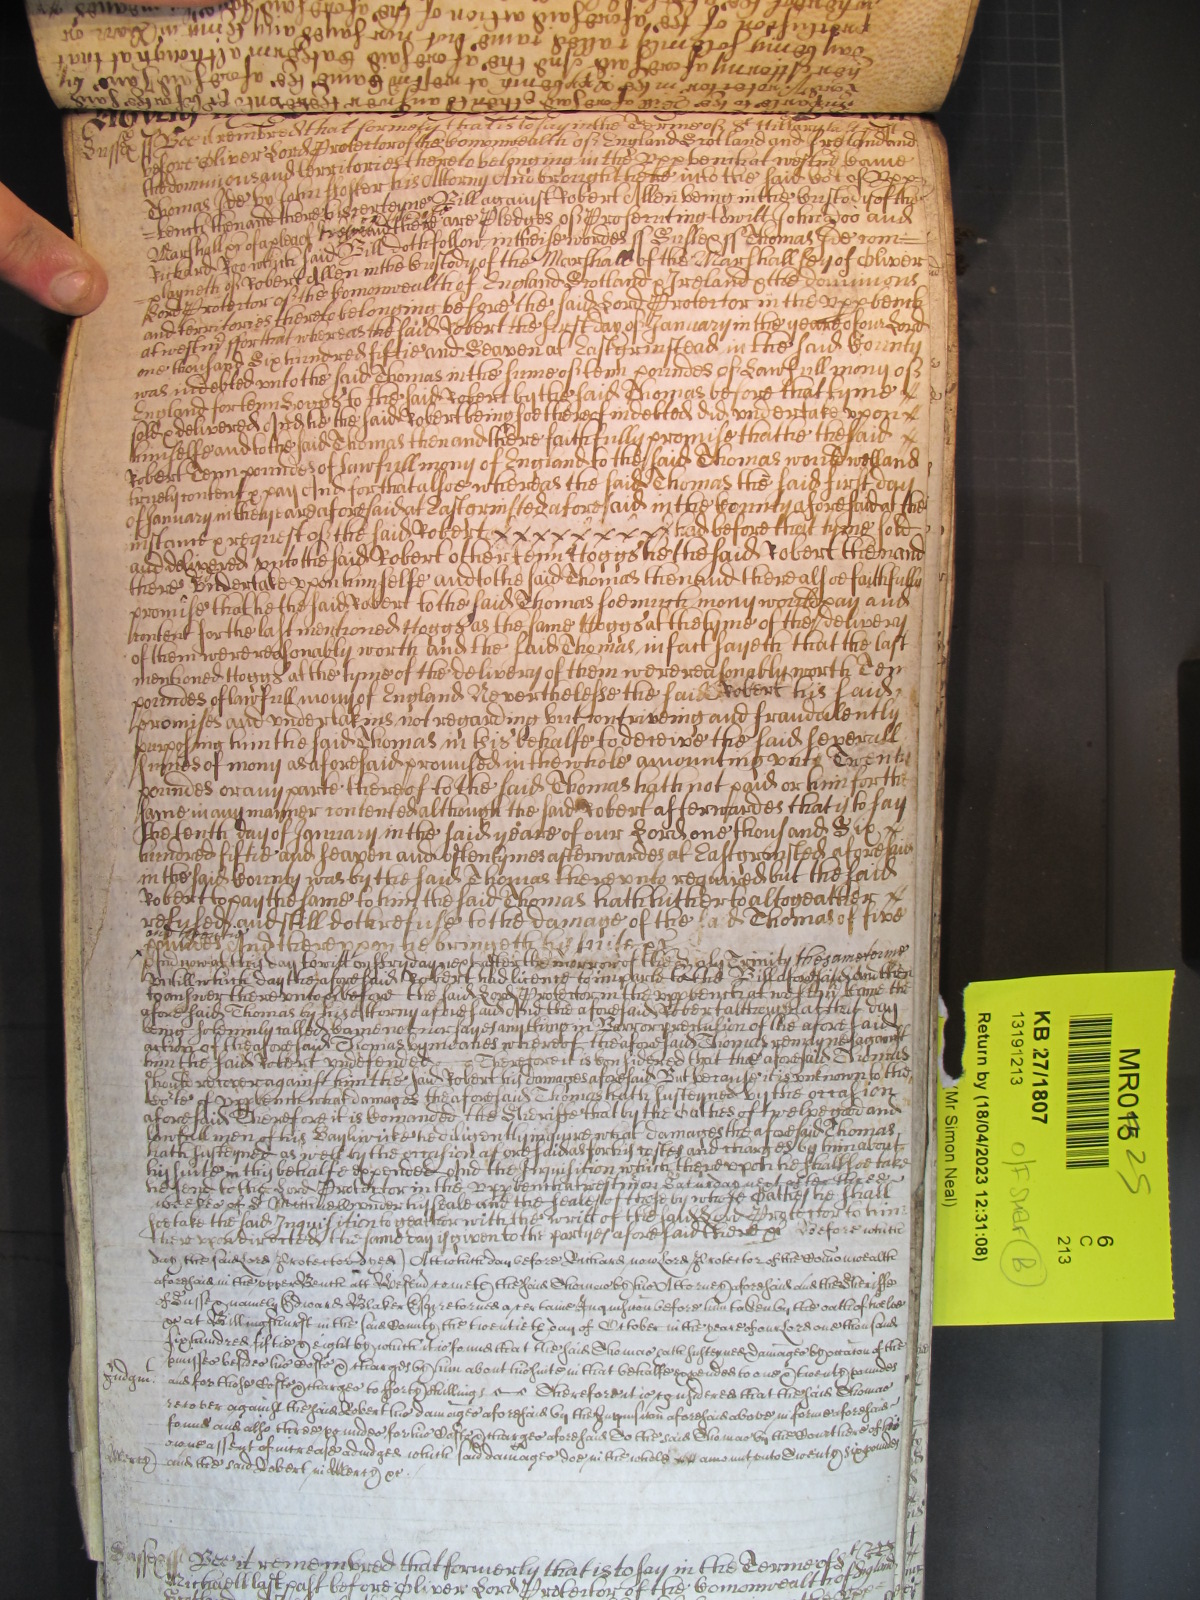 Sussex ss Bee it remembred that formerly that is to say in the Terme of St Hillary last past
before Oliver Lord Protector of the Comonwealth of England Scotland and Ireland and
the dominions and territories thereto belonging in the upper bench at Westm came
Thomas by John Foster his Attorny And brought here into the said Cot of upp
bench then and there his certeyne Bill against Robert Allen being in the Custody of the
Marshall &c of a plea of Trespas and there are Pledges of Prosecuting to witt John Doo and
Richard Roo which said Bill doth follow in theise wordes ss Sussex ss Thomas com=
=playneth of Robert Allen in the Custody of the Marshall of the Marshallsey of Oliver
Lord Protector of the Comonwealth of England Scotland & Ireland & the dominions
and territories thereto belonging before the said Lord Protector in the upper bench
at westm ss for that whereas the said Robert the first day of January in the yeare of our Lord
one thousand Six hundred fiftie and Seaven at Eastgrinstead in the said County
was indebted unto the said Thomas in the sume of tenn poundes of Lawfull mony of
England for tenn hoggs to the said Robert by the said Thomas before that tyme
sold & delivered And he the said Robert being soe thereof indebted did undertake upon
himselfe and to the said Thomas then and there faithfully promise that he the said
Robert Tenn poundes of lawfull mony of England to the said Thomas would well and
truely content & pay And for that alsoe whereas the said Thomas the said first day
of January in the yeare aforesaid at Eastgrinsted aforesaid in the County aforesaid at the
instance & request of the said Robert x x x x x x x x x had before that tyme sold
and delivered unto the said Robert other tenn Hoggs he the said Robert then and
there Undertake upon himselfe and to the said Thomas then and there alsoe faithfully
promise that he the said Robert to the said Thomas soe much mony would pay and
content for the last mentioned Hoggs as the same Hoggs at the tyme of the delivery
of them were reasonably worth and the said Thomas in fact sayeth that the last
mentioned Hoggs at the tyme of the delivery of them were reasonably worth Ten
poundes of lawfull mony of England Neverthelesse the said Robert his said
promises and undertakings not regarding but contriveing and fraudulently
purposing him the said Thomas in this behalfe to deceive the said severall
sumes of mony as aforesaid promised in the whole amounting unto Twenty
poundes or any parte thereof to the said Thomas hath not paid or him for the
same in any manner contented although the said Robert afterwardes that is to say
the tenth day of January in the said yeare of our Lord one thousand Six
hundred fiftie and seaven and oftentymes afterwardes at Eastgrinsted aforesaid
in the said County was by the said Thomas thereunto required but the said
Robert to pay the same to him the said Thomas hath hitherto altogeather
refused and still doth refuse to the damage of the said Thomas of five
poundes And thereupon he bringeth his suite &c
And now at this day to witt on fryday next after the morrow of the Holy Trinity the same terme
Untill which day the aforesaid Robert had licence to imparle to the Bill aforesaid and then
to answer thereunto before the said Lord Protector in the upp bench at westm came the
aforesaid Thomas by his Attorny aforesaid And the aforesaid Robert although att that day
being Solemnly called came not nor sayes any thing in Barr or preclusion of the aforesaid
action of the aforesaid Thomas by meanes whereof the aforesaid Thomas remaynes against
him the said Robert undefended Therefore it is considered that the aforesaid Thomas
should recover against him the said Robert his damages aforesaid But because it is unknown to the
Cote of upp bench what damages the aforesaid Thomas hath susteyned by the occasion
aforesaid Therefore it is Comanded the Sheriffe that by the Oathes of twelve good and
lawfull men of his Baylywicke he diligently inquire what damages the aforesaid Thomas
hath susteyned as well by the occasion aforesaid as for his costes and charges by him about
his suite in this behalfe expended And the Inquisition which thereupon he shall soe take
he send to the Lord Protector in the upp bench at westm on Saturday next after three
weekes of St Michaell under his seale and the seales of those by whose Oathes he shall
soe take the said Inquisition togeather with the writt of the said Lord Protector to him
thereupon directed the same day is given to the partyes aforesaid there &c Before which
day the said Lord Protector dyed Att which day before Richard now Lord Protector of the Comonwealth
aforesaid in the upper Bench att Westm cometh the said Thomas by his Attorney aforesaid and the Sheriffe
of Sussex namely Edward Blaker Esqr retorned a certaine Inquisicion before him taken by the oath of twelve
&c at Billingshurst in the said County the twentieth day of October in the yeare of our Lord one thousand
six hundred fiftie & eight by which it is found that the said Thomas hath susteyned damages by reason of the
premisses besides his Costs & charges by him about his suite in that behalfe expended to one & twenty poundes
Judgmt. and for those Costs & charges to forty shillings Therefore it is considered that the said Thomas
recover against the said Robert his damages aforesaid by the Inquisicion aforesaid above in forme aforesaid
found and also three poundes for his Costs & charges aforesaid to the said Thomas by the Court here of his
owne assent of increase adjudged which said damages doe in the whole amount unto Twenty six poundes
Mercy and the said Robert in Mercy &c.
Sussex ss Bee it remembred that formerly that is to say in the Terme of St
Michaell last past before Oliver Lord Protector of the Comonwealth of England
MR016 25
6
C
213
KB 27/1807
13191213
O/F Shelf B
Return by (18/04/2023 12:31:08)
(Mr Simon Neal)